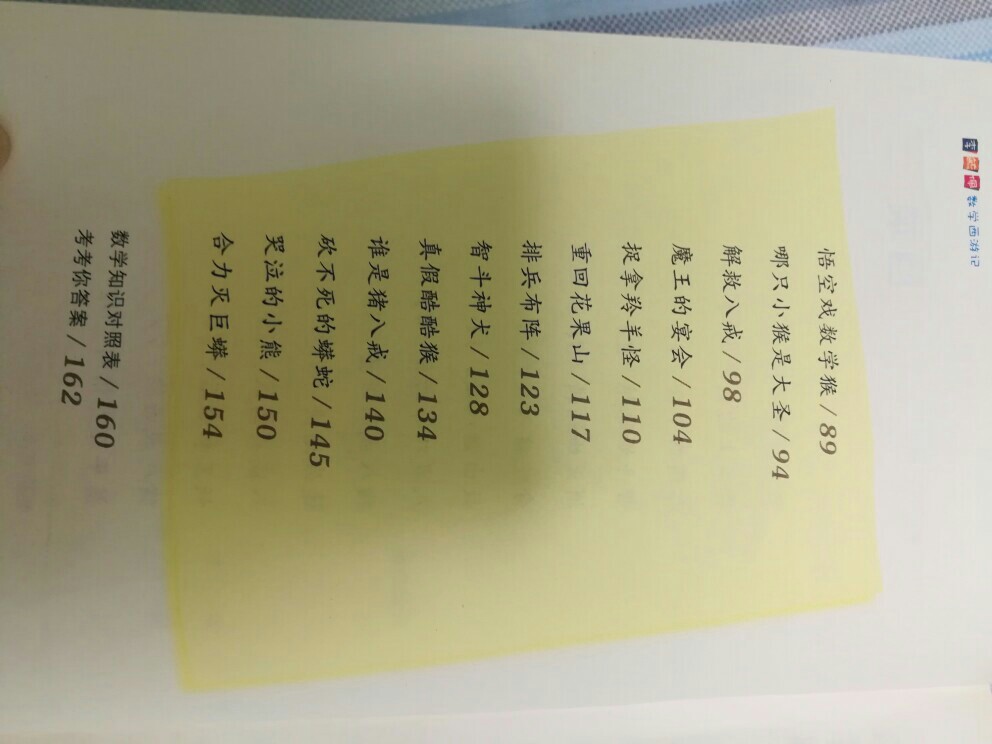 李毓佩数学西游记
悟空戏数学猴/89
哪只小猴是大圣/94
解救八戒/98
魔王的宴会/104
捉拿羚羊怪/110
重回花果山/117
排兵布阵/123
智斗神犬/128
真假酷酷猴/134
谁是猪八戒/140
砍不死的蟒蛇/145
哭泣的小熊/150
合力灭巨蟒/154
数学知识对照表/160
考考你答案/162